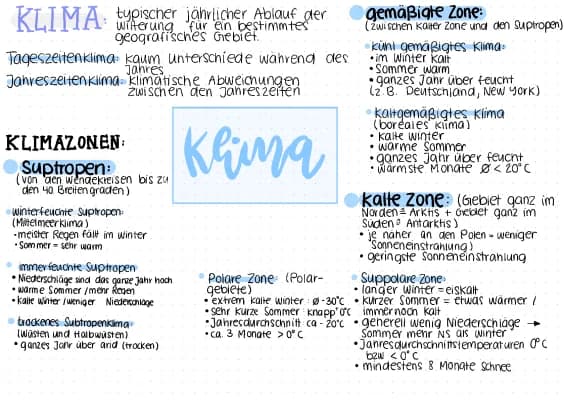 KLIMA: typischer jährlicher Ablauf der
witerung für ein bestimmtes
geografisches Gebiet.
Tageszeitenklima: kaum unterschiede während des
Jahres
Jahreszeitenklima: klimatische Abweichungen
zwischen den Jahreszeiten
KLIMAZONEN:
Suptropen:
(von den wendekreisen bis zu
den 40 Breitengraden)
winterfeuchte Suptropen:
(Mittelmeerklima)
-meister Regen fällt im winter
• Sommer = sehr warm
immerfeuchte Suptropen
• Niederschläge sind das ganze Jahr hoch
• warme Sommer / mehr Regen
• kalte winter / weniger Niederschläge
trockenes Subtropenklima
(Wüsten und Halbwüsten)
• ganzes Jahr über arid (trocken)
Klima
Polare Zone: (Polar-
gebiete)
• extrem kalte winter: Ø -30°C
• sehr kurze Sommer: knapp 0°C
• Jahresdurchschnitt: ca -20°C
• ca. 3 Monate > 0°C
gemäßigte Zone:
(zwischen kalter Zone und den Suptropen)
kühl gemäßigtes Klima:
• im Winter kalt
• Sommer warm
• ganzes Jahr über feucht
(z.B. Deutschland, New York)
Kaltgemäßigtes Klima
(boreales klima)
• kalte winter
• warme Sommer
• ganzes Jahr über feucht
• wärmste Monate Ø < 20°C
kalte Zone: (Gebiet ganz im
Norden = Arktis + Gebiet ganz im
Süden = Antarktis)
• je näher an den Polen = weniger
Sonneneinstrahlung)
• geringste Sonneneinstrahlung
Suppolare Zone:
• langer winter = eiskalt
• kurzer Sommer = etwas wärmer /
immernoch kalt
• generell wenig Niederschläge →
Sommer mehr NS als Winter
• Jahresdurchschnittstemperaturen 0°C
bzw < 0°C
• mindestens 8 Monate Schnee